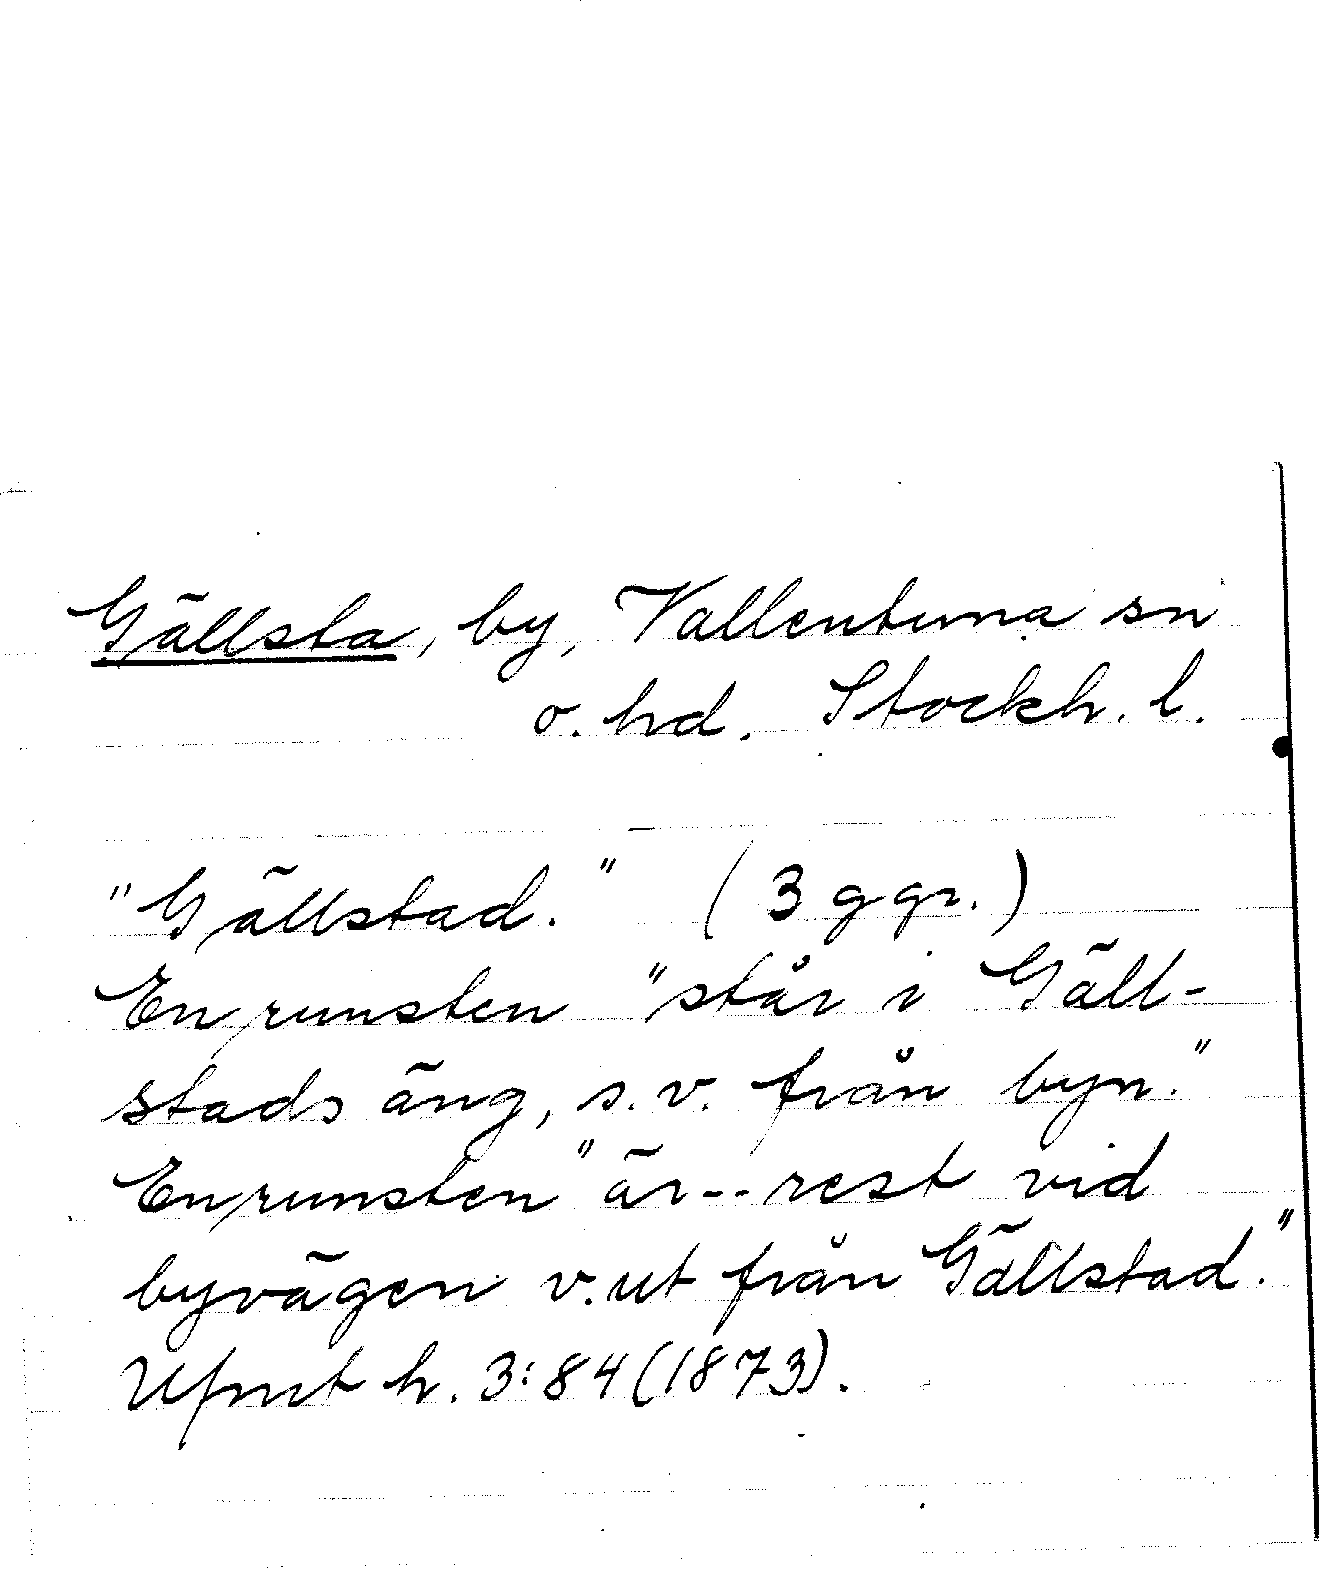 Gällsta, by, Vallentuna sn
o. hd. Stockh. l.
"Gällstad." (3 ggr.)
En runsten "står i Gäll-
stads äng, s.v. från byn."
En runsten "är -- rest vid
byvägen v. ut från Gällstad."
Ufmt h. 3:84 (1873).